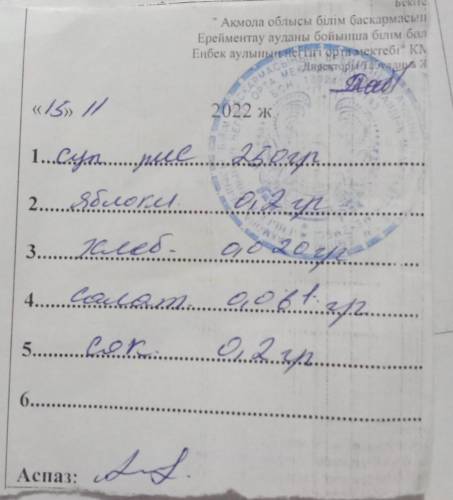 Бекіте
" Ақмола облысы білім басқармасын
Ерейментау ауданы бойынша білім бөл
Еңбек ауылының негізгі орта мектебі" КМ
Директоры
«15» 11 2022 ж
1. суп рис 250гр
2. яблоки 0,2 гр
3. хлеб- 0,020гр
4. салат. гр
5. сок. 0,2 гр
6.
Аспаз: